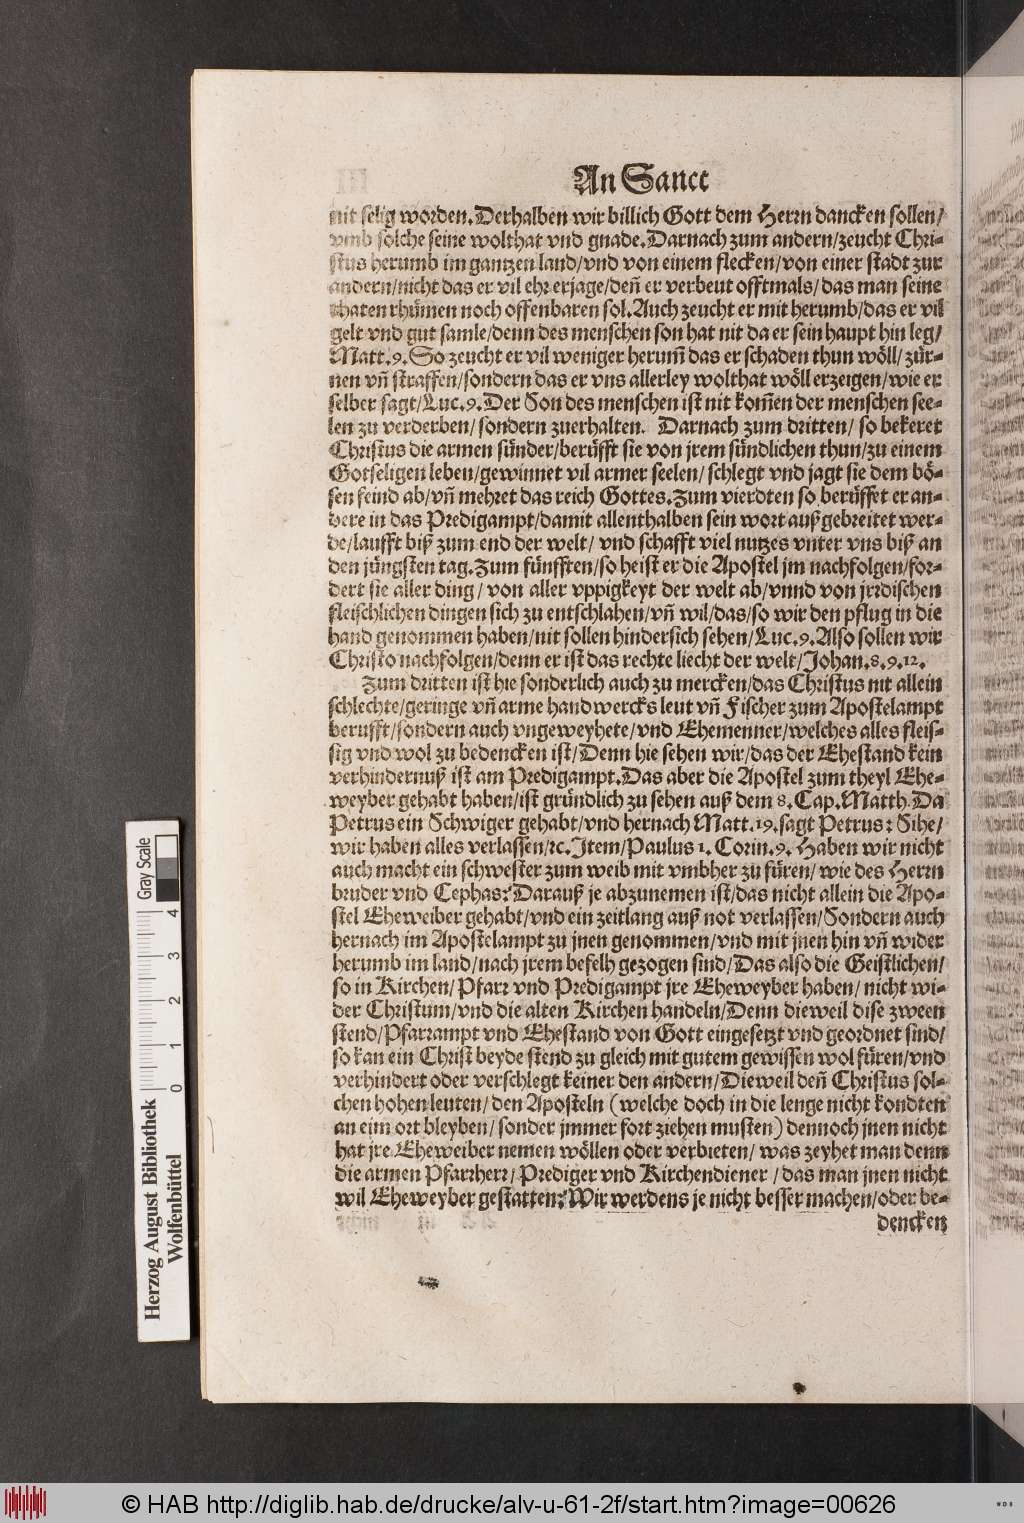 An Sanct
nit selig worden. Derhalben wir billich Gott dem Herrn dancken sollen/
vmb solche seine wolthat vnd gnade. Darnach zum andern/zeucht Chri-
stus herumb im gantzen land/vnd von einem flecken/von einer stadt zur
andern/nicht das er vil ehr erjage/deñ er verbeut offtmals/das man seine
thaten rhümen noch offenbaren sol. Auch zeucht er mit herumb/das er vil
gelt vnd gut samle/denn des menschen son hat nit da er sein haupt hin leg/
Matt. 9. So zeucht er vil weniger herum̃ das er schaden thun wöll/zür-
nen vñ straffen/sondern das er vns allerley wolthat wöll erzeigen/wie er
selber sagt/Luc. 9. Der Son des menschen ist nit kom̃en der menschen see-
len zu verderben/sondern zuerhalten. Darnach zum dritten/ so bekeret
Christus die armen sünder/berüfft sie von jrem sündlichen thun/zu einem
Gotseligen leben/gewinnet vil armer seelen/ schlegt vnd jagt sie dem bö-
sen feind ab/vñ mehret das reich Gottes. Zum vierdten so berüffet er an-
dere in das Predigampt/damit allenthalben sein wort auß gebreitet wer-
de/laufft biß zum end der welt/ vnd schafft viel nutzes vnter vns biß an
den jüngsten tag. Zum fünfften/so heist er die Apostel jm nachfolgen/for-
dert sie aller ding/ von aller vppigkeyt der welt ab/vnnd von jrrdischen
fleischlichen dingen sich zu entschlahen/vñ wil/das/so wir den pflug in die
hand genommen haben/nit sollen hindersich sehen/Luc. 9. Also sollen wir
Christo nachfolgen/denn er ist das rechte liecht der welt/Johan. 8. 9. 12.
Zum dritten ist hie sonderlich auch zu mercken/das Christus nit allein
schlechte/geringe vñ arme handwercks leut vñ Fischer zum Apostelampt
berufft/sondern auch vngeweyhete/vnd Ehemenner/welches alles fleis-
sig vnd wol zu bedencken ist/Denn hie sehen wir/das der Ehestand kein
verhindernuß ist am Predigampt. Das aber die Apostel zum theyl Ehe-
weyber gehabt haben/ist gründlich zu sehen auß dem 8. Cap. Matth. Da
Petrus ein Schwiger gehabt/vnd hernach Matt. 19. sagt Petrus: Sihe/
wir haben alles verlassen/ꝛc. Item/Paulus 1. Corin. 9. Haben wir nicht
auch macht ein schwester zum weib mit vmbher zu füren/ wie des Herrn
bruder vnd Cephas? Darauß je abzunemen ist/das nicht allein die Apo-
stel Eheweiber gehabt/vnd ein zeitlang auß not verlassen/Sondern auch
hernach im Apostelampt zu jnen genommen/vnd mit jnen hin vñ wider
herumb im land/nach jrem befelh gezogen sind/Das also die Geistlichen/
so in Kirchen/Pfarr vnd Predigampt jre Eheweyber haben/ nicht wi-
der Christum/vnd die alten Kirchen handeln/Denn dieweil dise zween
stend/Pfarrampt vnd Ehestand von Gott eingesetzt vnd geordnet sind/
so kan ein Christ beyde stend zu gleich mit gutem gewissen wol füren/vnd
verhindert oder verschlegt keiner den andern/Dieweil deñ Christus sol-
chen hohen leuten/ den Aposteln (welche doch in die lenge nicht kondten
an eim ort bleyben/ sonder jmmer fort ziehen musten) dennoch jnen nicht
hat jre Eheweiber nemen wöllen oder verbieten/ was zeyhet man denn
die armen Pfarrherr/ Prediger vnd Kirchendiener/ das man jnen nicht
wil Eheweyber gestatten? Wir werdens je nicht besser machen/oder be-
dencken
Herzog August Bibliothek
Wolfenbüttel
0 1 2 3 4
Gray Scale
© HAB http://diglib.hab.de/drucke/alv-u-61-2f/start.htm?image=00626